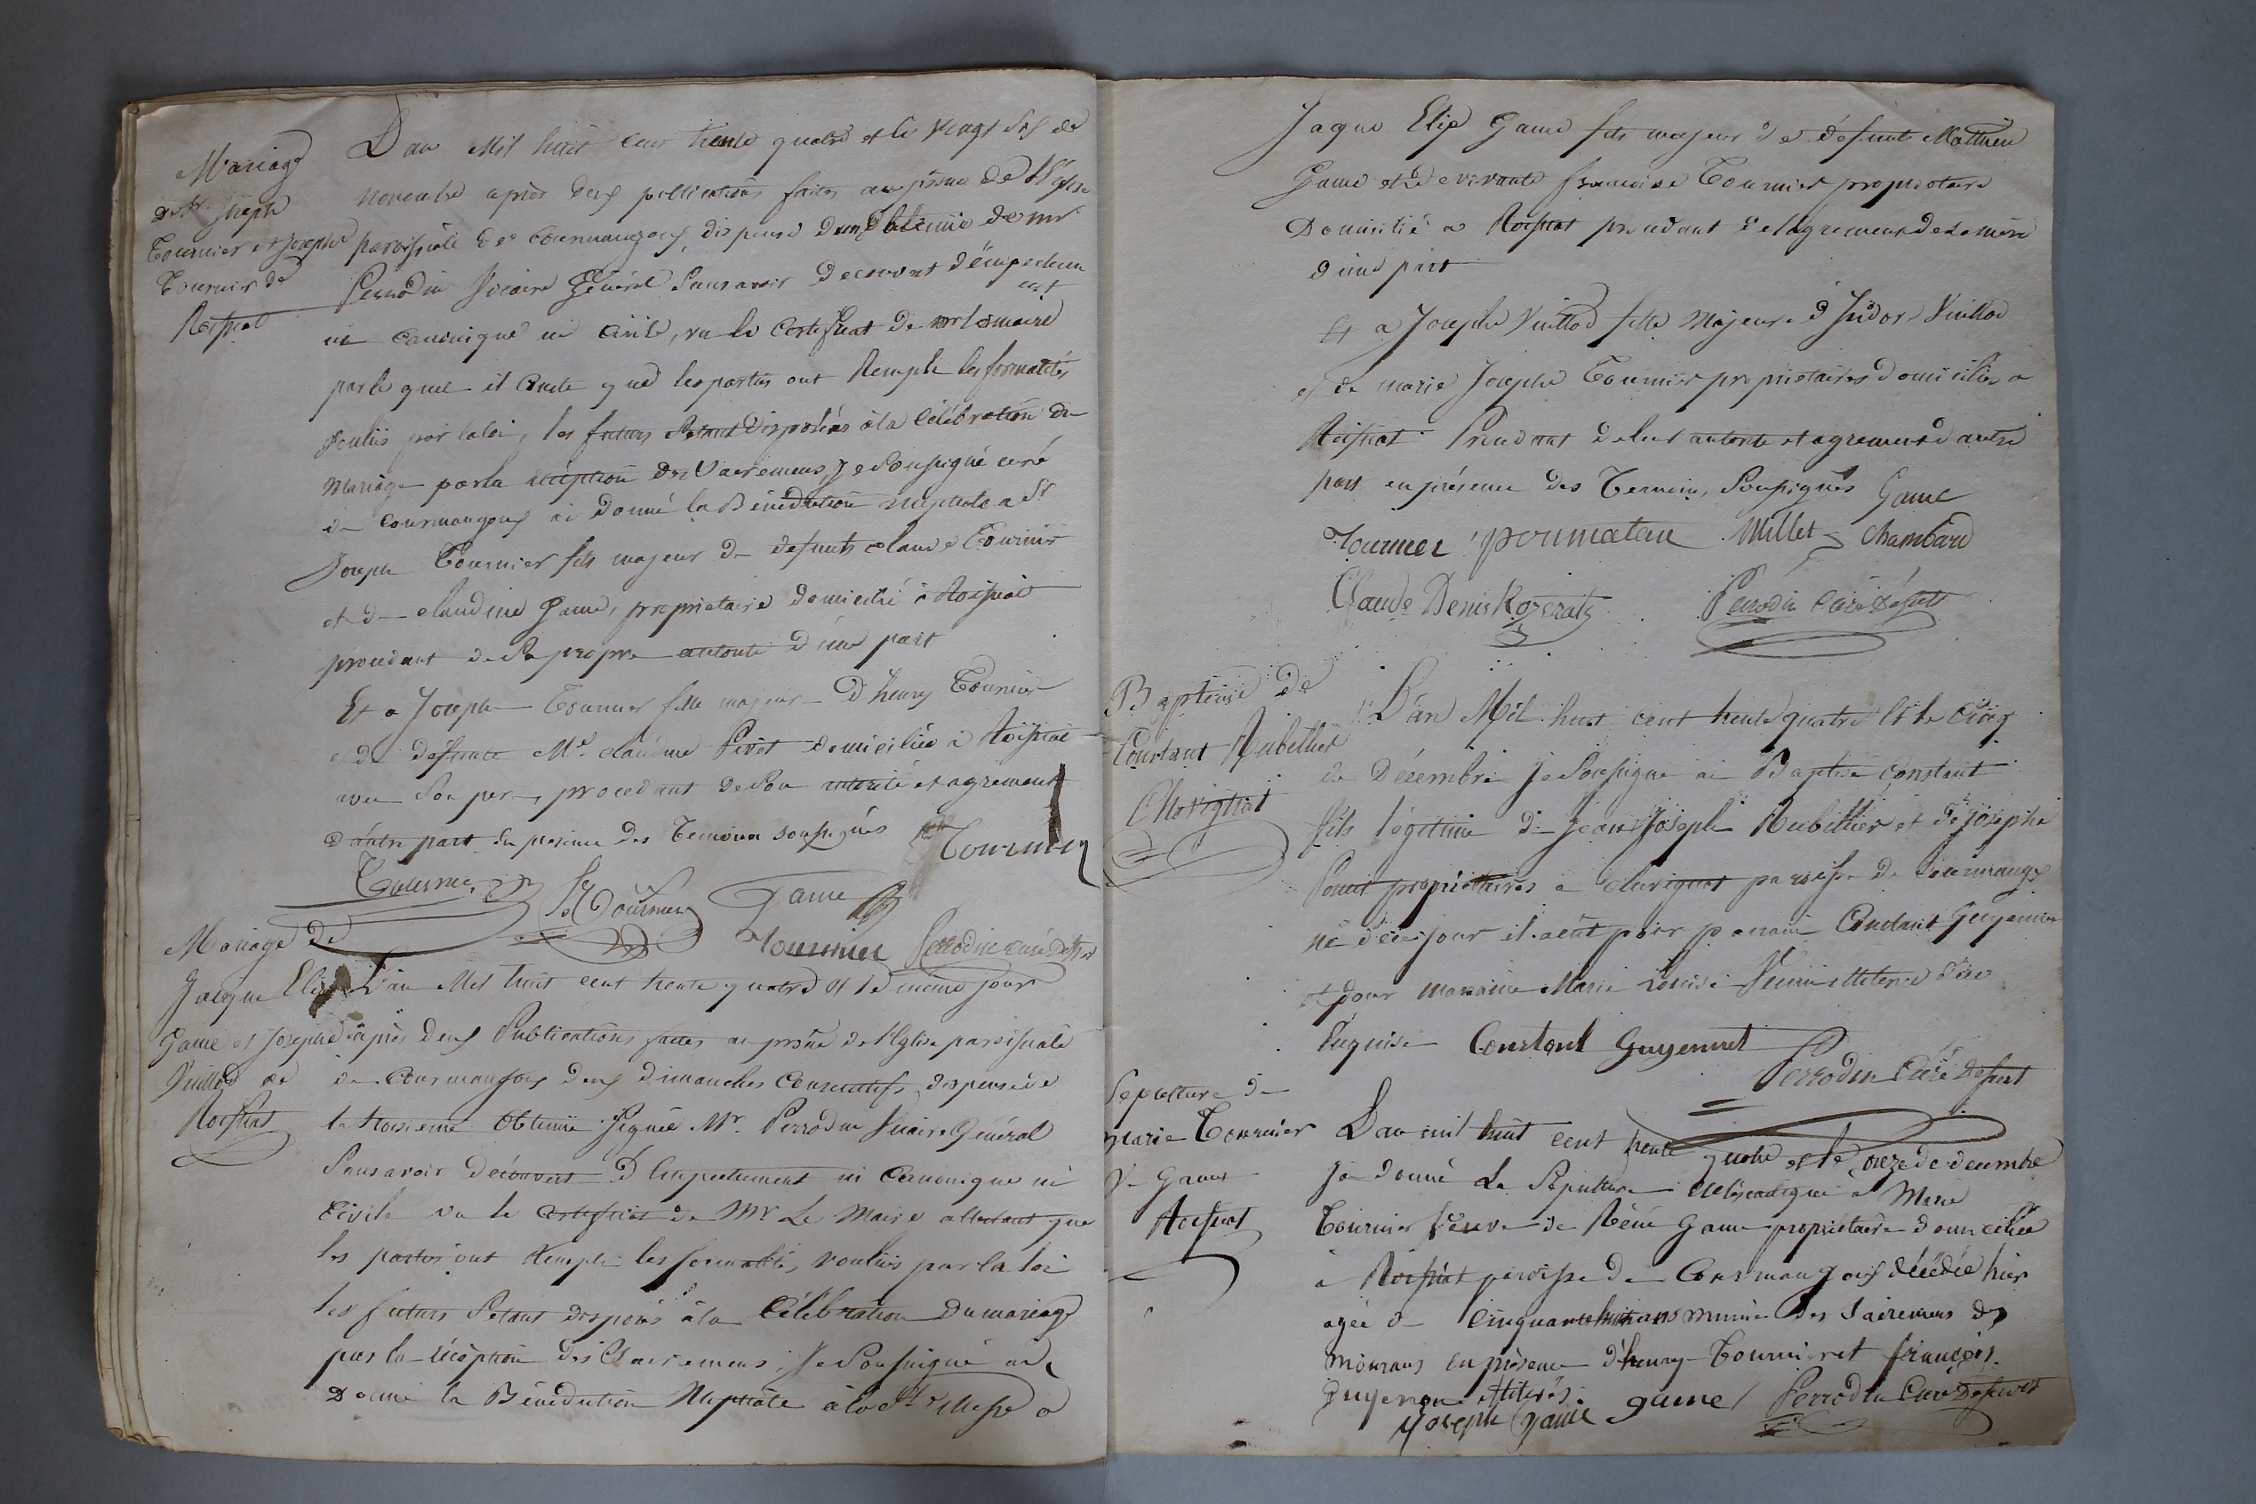 Mariage
de Sr. Joseph
Tournier et Josephe
Tournier de
Roissiat
L'an Mil huit cent trente quatre et le vingt six de
novembre après deux publications faites au prône de l'Eglise
paroissiale de Courmangoux, dispense d'une obtenue de mr
Perrodin Vicaire Général Sans avoir decouvert d'empechem
ent
ni canonique ni civile, vu le Certificat de mr le maire
par le quel il conste que les parties ont Rempli les formalités
voulües par la loi, les futurs S'etant disposées à la Célébration du
Mariage par la réception des Sacremens, Je Soussigné curé
de Courmangoux ai Donné la Bénédiction nuptiale a Sr
Joseph Tournier fils majeur de defunts claude Tournier
et de claudine Game, proprietaire domicilié à Roissiat
procedant de Sa propre autorité d'une part
Et a Josephe Tournier fille majeure d'henry Tournier
et de deffunte Me. claudine Pivet domiciliée à Roissiat
avec Son pere, procedant de Son autorité et agrement
d'autre part en presence des Temoins soussignés Tournier
Tournier Tournier Game
Tournier Perrodin curé desst
Mariage de
Jacque Elie
Game et Josephe
Vuillod de
Roissiat
L'an Mil huit cent trente quatre et le même jour
après deux Publications faites au prône de l'Eglise paroissiale
de Courmangoux deux dimanches Consecutifs, dispense de
la troisieme Obtenüe Signée Mr. Perrodin Vicaire Général
Sans avoir découvert d'Empechement ni Canonique ni
Civile vu le certificat de Mr Le Maire attestant que
les parties ont Rempli les formalités, voulües par la loi
les futurs S'etant disposés à la Célébration du mariage
par la réception des Sacremens, Je Soussigné ai
Donné la Bénédiction Nuptiale à la Ste Messe a
Jaque Elie Game fils majeur de défunt Mathieu
Game et de vivante francoise Tournier proprietaire
Domicilié a Roissiat procedant de l'agrement de Sa mère
d'une part
Et a Josephe Vuillod fille Majeure d'Isidor Vuillod
et de marie Josephe Tournier proprietaires domiciliés a
Roissiat Procedant de leur autorité et agrement d'autre
part en présence des Temoins Soussignés Game
Tournier poumatau Millet Chambard
Claude Denis Rozerat Perrodin Curé Desst
Baptême de
Constant Rubellier
Chevignat
L'an Mil huit cent trente quatre et le Cinq
de Décembre Je Soussigné ai Baptisé Constant
fils légitime de jean Joseph Rubellier et de josephe
Ponsit propriétaires a chevignat paroisse de Courmangx
né dece jour il a eüt pour parrain Constant Guyennet
et pour marraine Marie Louise
requise Constant Guyennet
Perrodin Curé Desst
Sepulture de
Marie Tournier
Ve Game
Roissiat
L'an mil huit cent trente quatre et le onze de decembre
J'ai donné La Sépulture ecclésiastique à Marie
Tournier Veuve de Réné Game propriétaire domiciliée
à Roissiat paroisse de Courmangoux décédée hier
agée de Cinquante huit ans munie des Sacremens des
mourans en présence d'henry Tournier et françois
Guyenon illitérés.
Joseph Game game Perrodin Curé Dessert